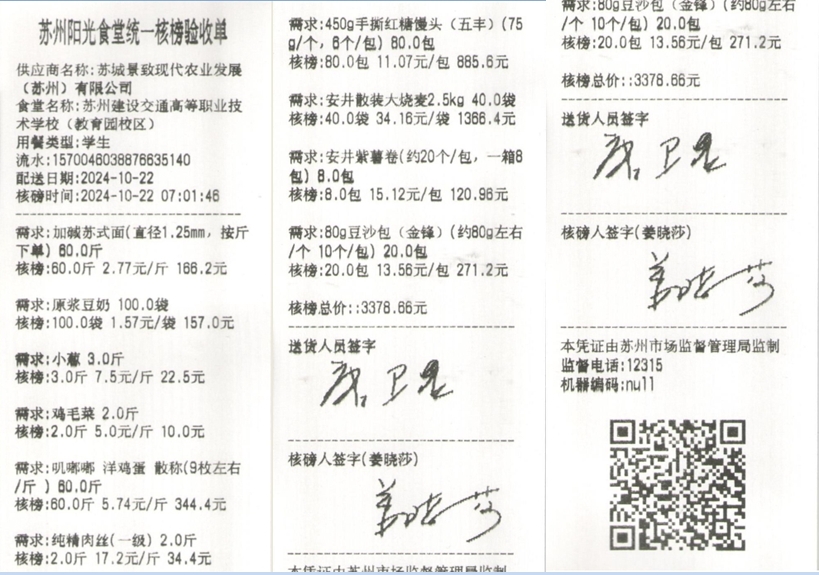 苏州阳光食堂统一核榜验收单
供应商名称:苏城景致现代农业发展
（苏州）有限公司
食堂名称:苏州建设交通高等职业技
术学校（教育园校区）
用餐类型:学生
流水:1570046038876635140
配送日期:2024-10-22
核磅时间:2024-10-22 07:01:46
需求:加碱苏式面(直径1.25mm，按斤
下单) 60.0斤
核榜:60.0斤 2.77元/斤 166.2元
需求:原浆豆奶 100.0袋
核榜:100.0袋 1.57元/袋 157.0元
需求:小葱 3.0斤
核榜:3.0斤 7.5元/斤 22.5元
需求:鸡毛菜 2.0斤
核榜:2.0斤 5.0元/斤 10.0元
需求:叽嘟嘟 洋鸡蛋 散称(9枚左右
/斤 ) 60.0斤
核榜:60.0斤 5.74元/斤 344.4元
需求:纯精肉丝(一级) 2.0斤
核榜:2.0斤 17.2元/斤 34.4元
需求:450g手撕红糖馒头（五丰）(75
g/个，6个/包) 80.0包
核榜:80.0包 11.07元/包 885.6元
需求:安井散装大烧麦2.5kg 40.0袋
核榜:40.0袋 34.16元/袋 1366.4元
需求:安井紫薯卷(约20个/包，一箱8
包) 8.0包
核榜:8.0包 15.12元/包 120.96元
需求:80g豆沙包（金锋）(约80g左右
/个 10个/包) 20.0包
核榜:20.0包 13.56元/包 271.2元
核榜总价::3378.66元
送货人员签字
核磅人签字(姜晓莎)
姜晓莎
本凭证由苏州市场监督管理局监制
需求:80g豆沙包（金锋）(约80g左右
/个 10个/包) 20.0包
核榜:20.0包 13.56元/包 271.2元
核榜总价::3378.66元
送货人员签字
核磅人签字(姜晓莎)
姜晓莎
本凭证由苏州市场监督管理局监制
监督电话:12315
机器编码:null